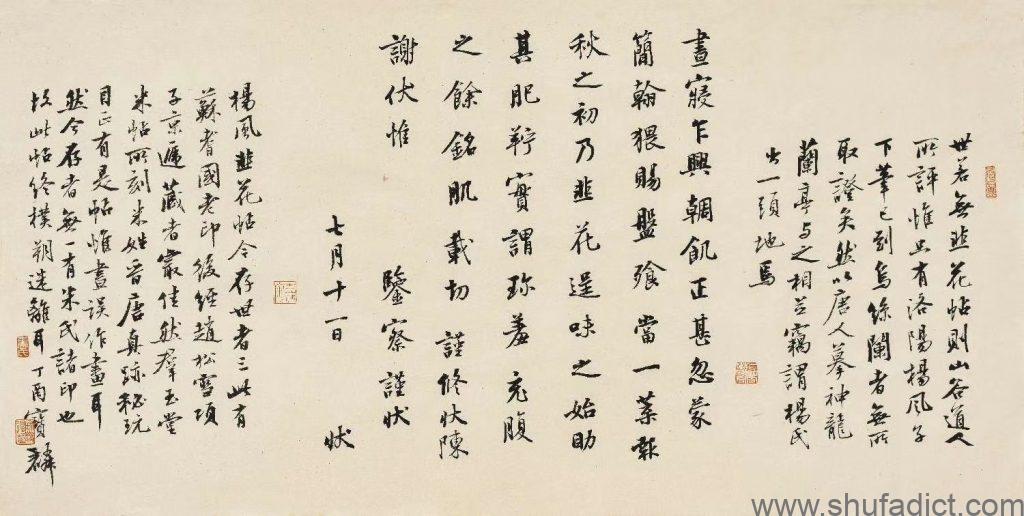 世若無韭花帖則山谷道人
所評惟有洛陽楊風子
下筆已到烏絲闌者無所
取證矣然以唐人摹神龍
蘭亭與之相竊謂楊氏
出一頭地焉
晝寢乍興輖飢正甚忽蒙
簡翰猥賜盤飧當一葉報
秋之初乃韭花逞味之始助
其肥羜實謂珍羞充腹
之餘銘肌載切 謹修狀陳
謝伏惟 鑒察謹狀
七月十一日 狀
楊風韭花帖今存世者三此有
蘇耆國老印後經趙松雪項
子京遞藏者最佳然群玉堂
米帖所刻米姓晉唐真跡秘玩
目正有是帖惟晝誤作畫耳
然今存者無一有米氏諸印也
故此帖終樸朔迷離耳 丁酉寶麟
www.shufadict.com